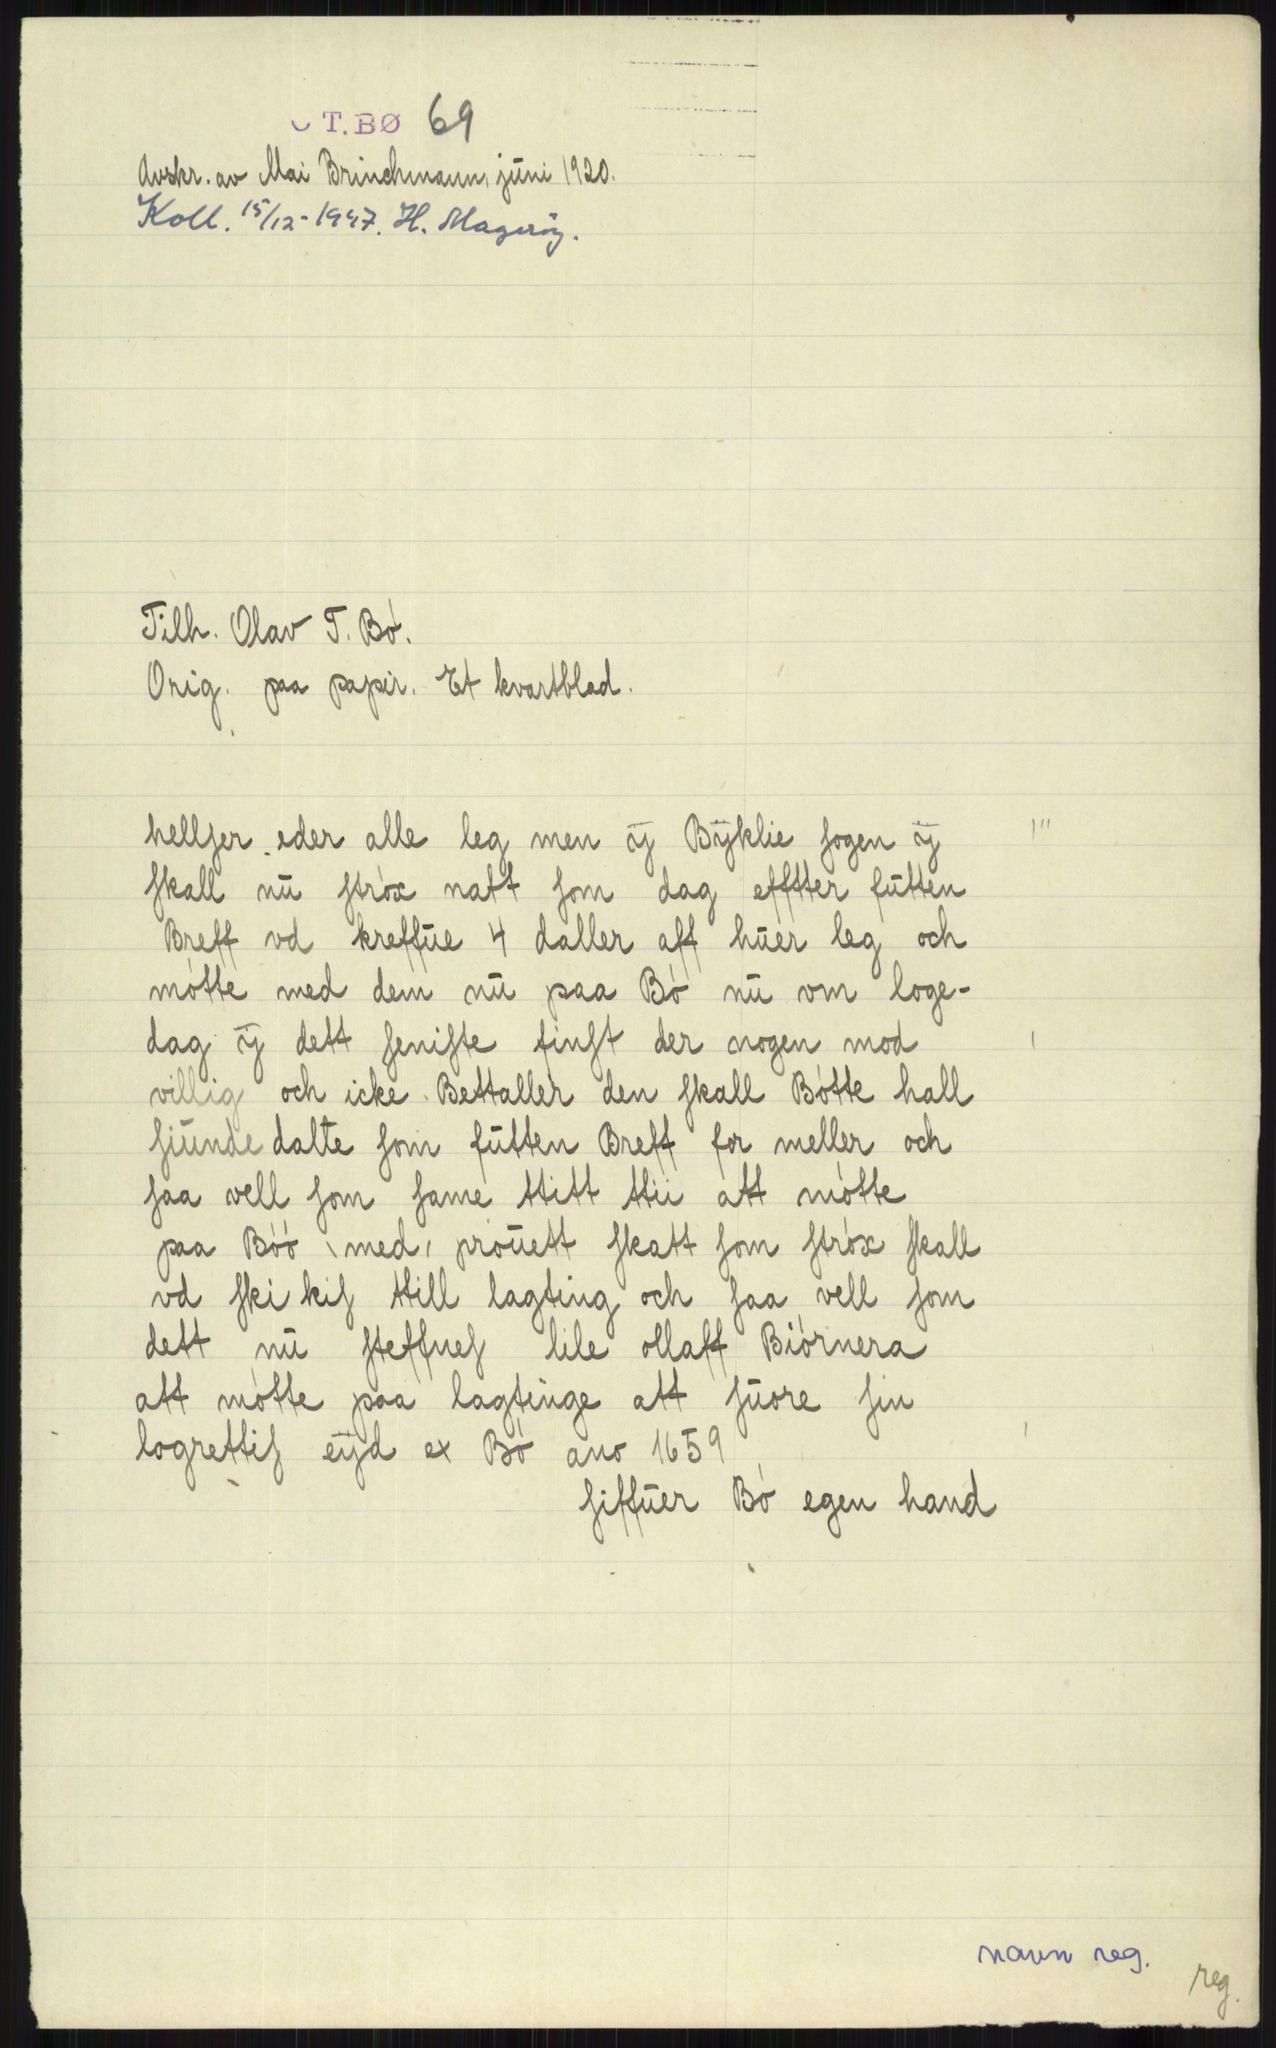 T.BØ 69
Avskr. av Mai Brinchmann, juni 1920.
Koll. 15/12-1947. H. Magerøy.
Tilh. Olav T. Bó.
Orig. paa papir. Et kvartblad.
hellſer eder alle leg men ÿ Bÿklie ſogen ÿ
ſkall nu ſtróx natt ſom dag efftter futten
Breff vd kreffue 4 daller aff huer leg och
mótte med dem nu paa Bó nu om loge-
dag ÿ dett ſeniſte finſt der nogen mod
villig och icke Bettaller den ſkall Bótte hall
ſiunde dalte ſom futten Breff for meller och
ſaa vell ſom ſame ttitt ttii att mótte
paa Bóó \med/ prouett ſkatt ſom ſtróx ſkall
vd ſki kiſ ttill lagting och ſaa vell ſom
dett nu ſteffneſ lile ollaff Biórnera
att mótte paa lagtinge att ſuore ſin
logrettiſ eÿd ex Bó ano 1659
ſiffuer Bó egen hand
navn reg.
reg.